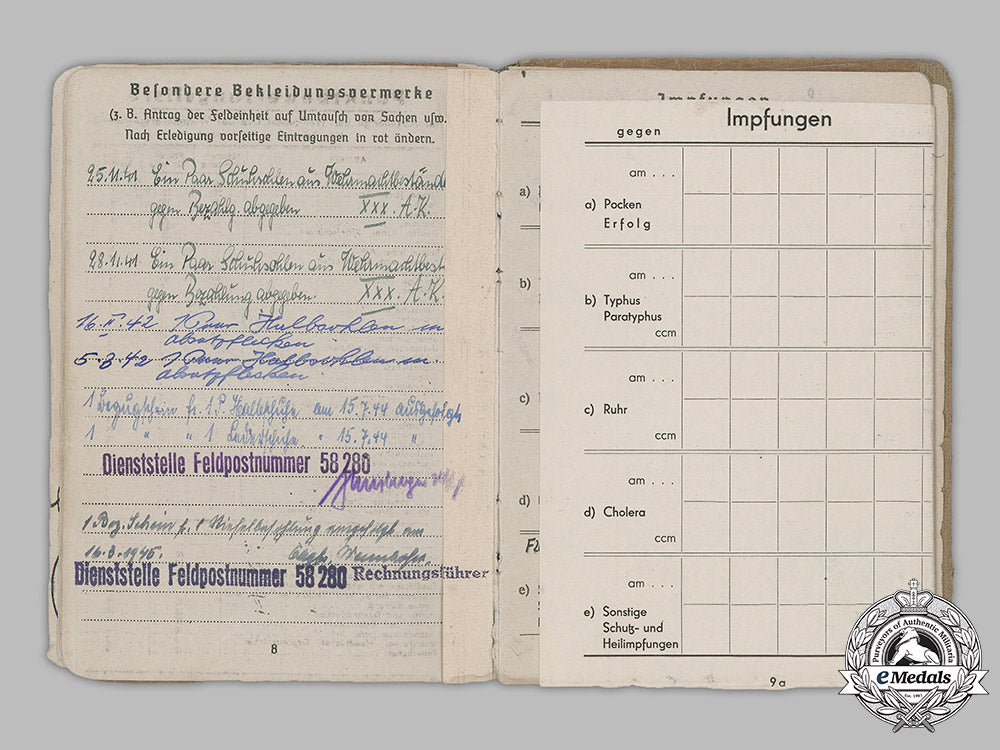 Besondere Bekleidungsvermerke
(z. B. Antrag der Feldeinheit auf Umtausch von Sachen usw.
Nach Erledigung vorseitige Eintragungen in rot ändern.
25.11.41 Ein Paar Schuhsohlen aus Wehrmachtbestände
gegen Bezahlg. abgegeben XXX. A.K.
28.11.41 Ein Paar Schuhsohlen aus Wehrmachtbest
gegen Bezahlung abgegeben. XXX. A.K.
16. II. 42 1 Paar Halbsohlen m
absatzflecken
5. 8. 42 1 Paar Halbsohlen m.
absatzflecken
1 Bezugschein für 1 P. am 15.7.44 ausgefolgt
1 " " 1 " 15.7.44 "
Dienststelle Feldpostnummer 58 280
1 Bez. Schein f. 1 am
16.3.1945.
Dienststelle Feldpostnummer 58 280 Rechnungsführer
8
Impfungen
a)
b)
c)
d)
e)
Impfungen
gegen
am . . .
a) Pocken
Erfolg
am . . .
b) Typhus
Paratyphus
ccm
am . . .
c) Ruhr
ccm
am . . .
d) Cholera
ccm
am . . .
e) Sonstige
Schutz- und
Heilimpfungen
9a
Purveyors of Authentic Militaria
eMedals
Est. 1967